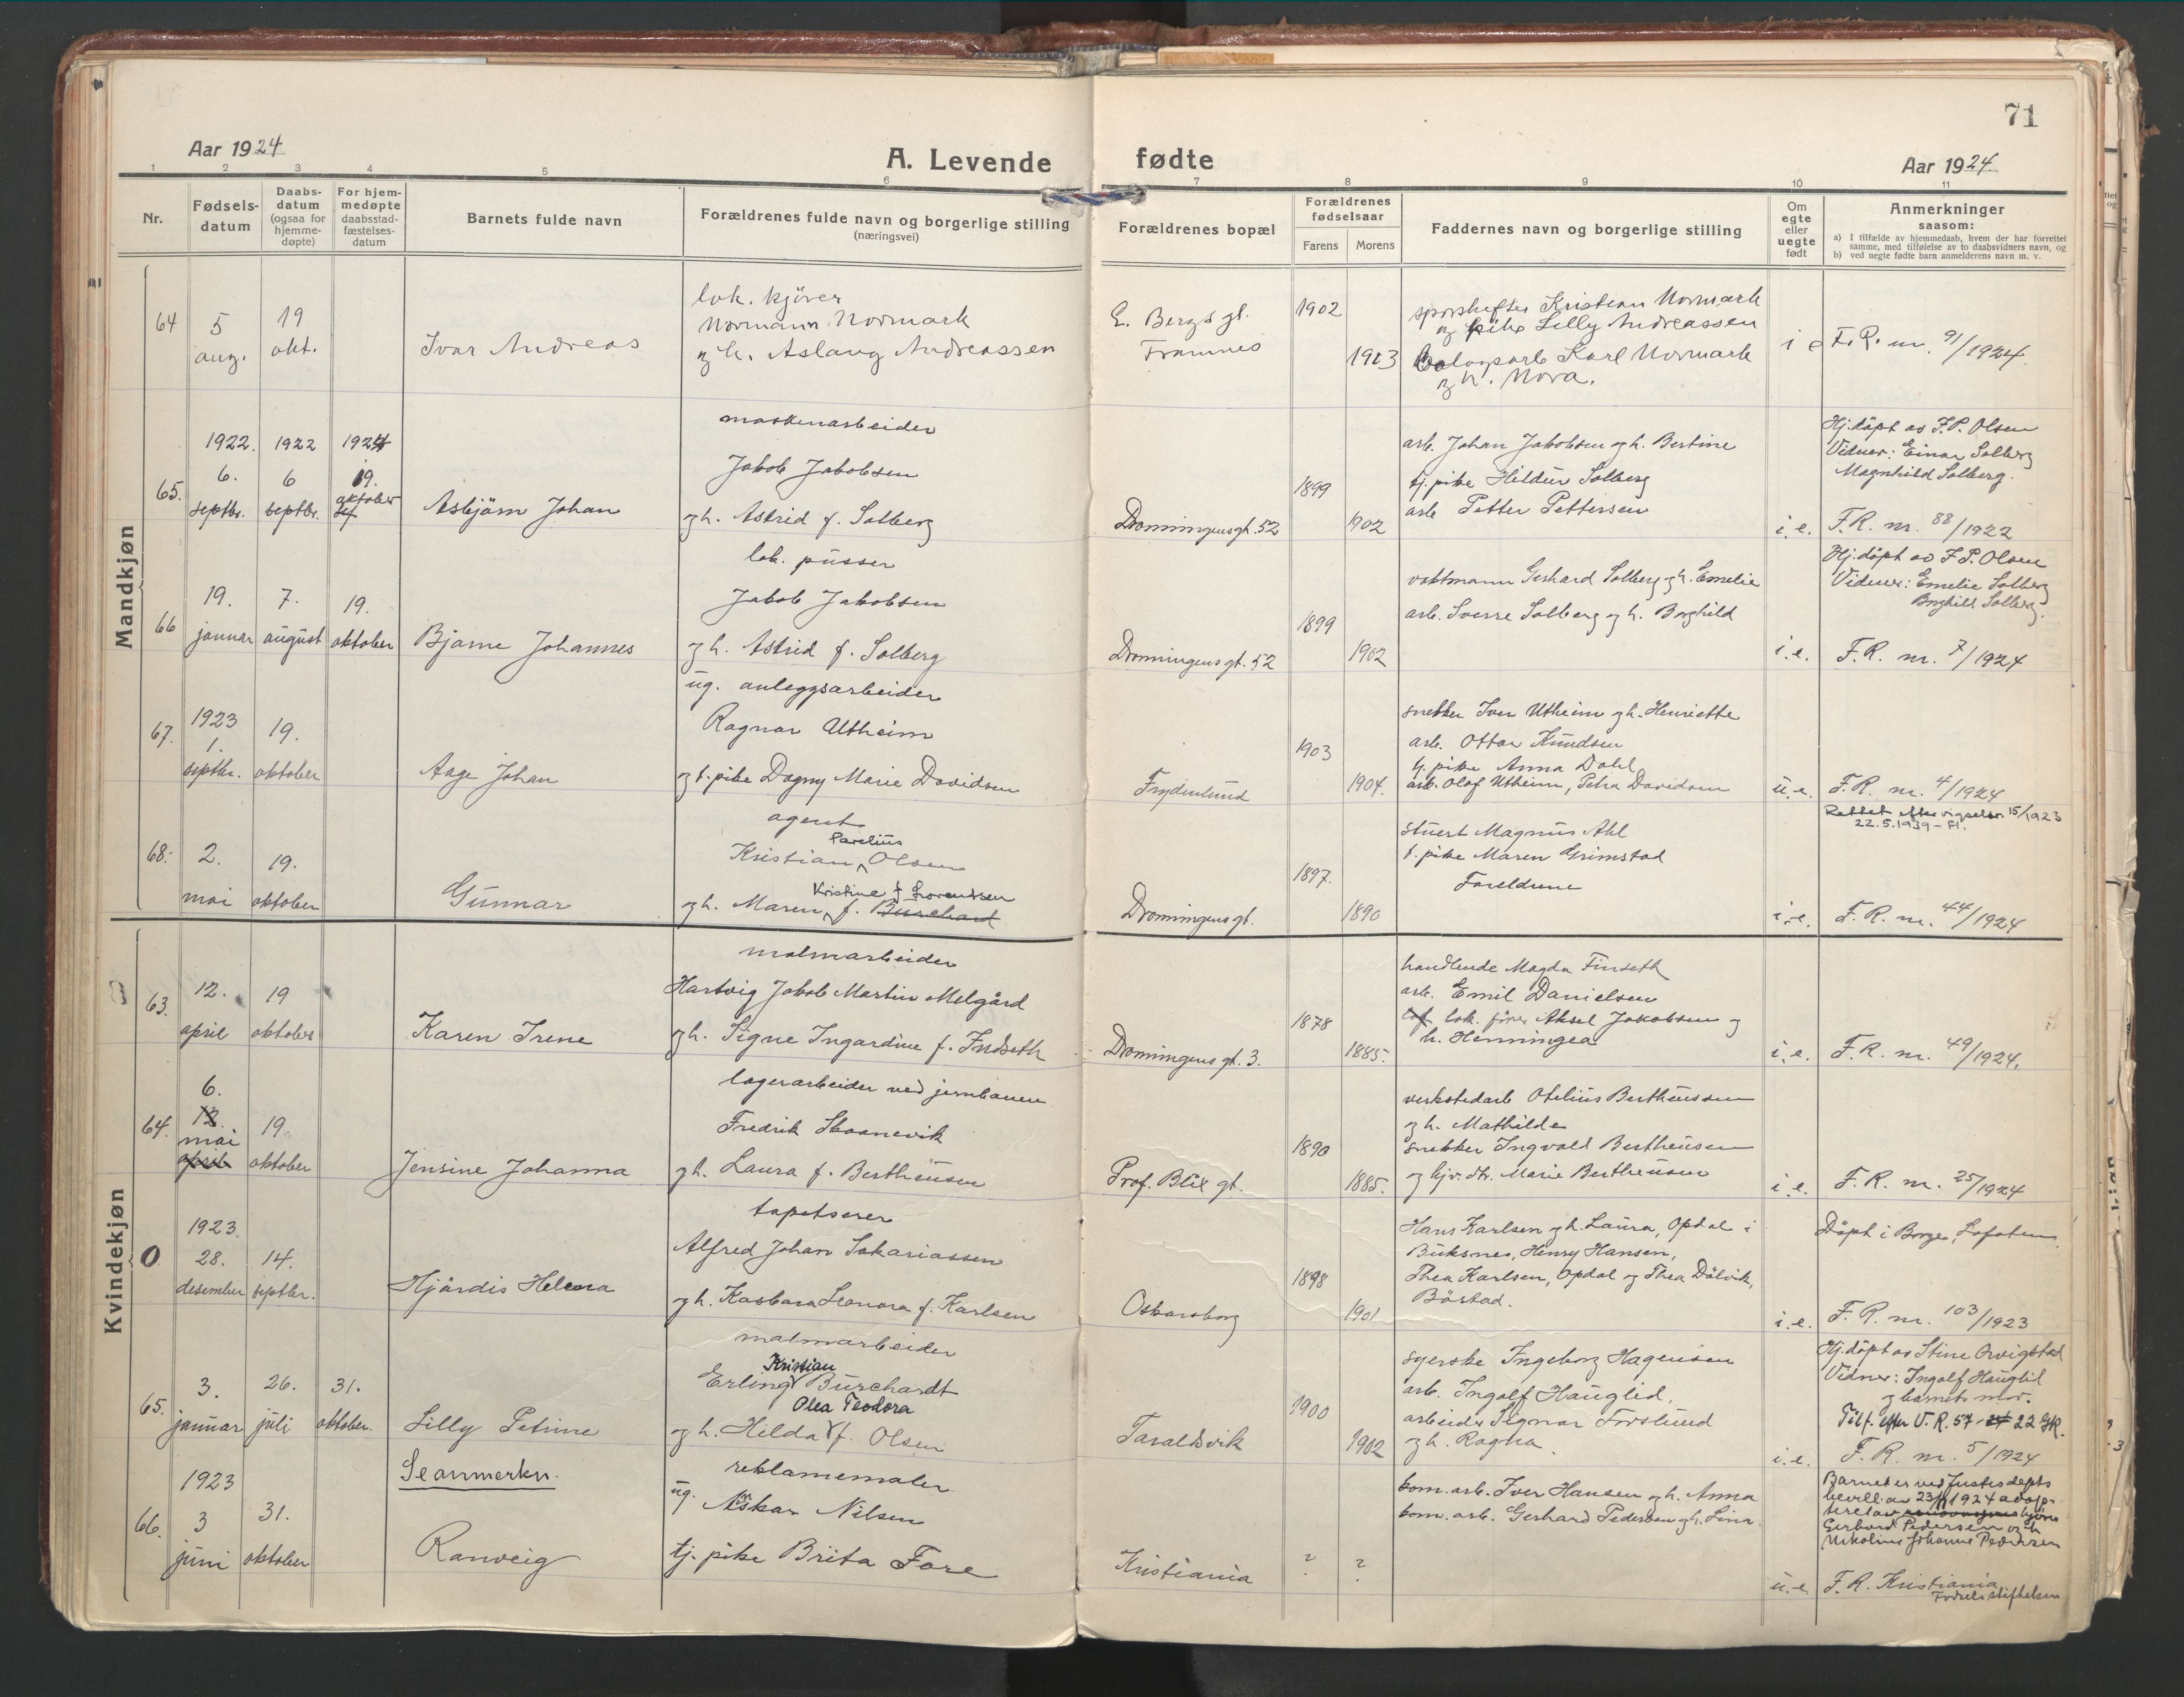 71
Aar 1924
A. Levende fødte
Aar 1924.
1 2 3 4 5 6 7 8 9 10 11
Nr.
Fødsels-
datum
Daabs-
datum
(ogsaa for
hjemme-
døpte)
For hjem-
medøpte
daabsstad-
fæstelses-
datum
Barnets fulde navn
Forældrenes fulde navn og borgerlige stilling
(næringsvei)
Forældrenes bopæl
Forældrenes
fødselsaar
Farens Morens
Faddernes navn og borgerlige stilling
Om
egte
eller
uegte
født
Anmerkninger
saasom:
a) I tilfælde av hjemmedaab, hvem der har forrettet
samme, med tilføielse av to daabsvidners navn, og
b) ved uegte fødte barn anmelderens navn m. v.
Mandkjøn
64
5
aug.
19
okt.
Ivar Andreas
lok. kjører
Normann Normark
og h. Aslaug Andreassen
E. Bergs gt.
Framnes
1902
1903
Kristian Normark
og pike Lilly Andreassen
Karl Normark
og h. Nora.
i e
F.R. nr. 91/1924.
65.
1922.
6.
septbr.
1922
6
septbr.
1924
19.
oktober
Asbjørn Johan
maskinarbeider
Jakob Jakobsen
og h. Astrid f. Solberg
Dronningensgt. 52
1899
1902
arb. Johan Jakobsen og h. Bertine
tj. pike Hildur Solberg
arb. Petter Pettersen
i. e.
Hj.døpt av F.P. Olsen
Vidner: Einar Solberg
Magnhild Solberg.
F.R. nr. 88/1922
66
19.
januar
7.
august
19.
oktober
Bjarne Johannes
lok. pusser
Jakob Jakobsen
og h. Astrid f. Solberg
Dronningens gt. 52
1899
1902
vaktmann Gerhard Solberg og h. Emelie
arb. Sverre Solberg og h. Borghild
i. e.
Hj.døpt av F.P. Olsen
Vidner: Emelie Solberg
Borghild Solberg.
F.R. nr. 7/1924
67.
1923
1.
septbr.
19.
oktober
Aage Johan
ug. anleggsarbeider
Ragnar Utheim
og t. pike Dagny Marie Davidsen
Frydenlund
1903
1904.
snekker Iver Utheim og h. Henriette
arb. Ottar Knudsen
tj. pike Anna Dahl
arb. Olaf Utheim, Petra Davidsen
u. e.
F.R. nr. 4/1924
68.
2.
mai
19.
oktober
Gunnar
agent
Parelius
Kristian Olsen
Kristine f Lorentsen
og h. Maren f. Burchard
Dronningensgt.
1897.
1890
stuert Magnus Ahl
t. pike Maren Grimstad
Foreldrene
i. e.
Rettet efter vigselsr. 15/1923
22.5.1939 - Fl.
F.R. nr. 44/1924
Kvindekjøn
63.
12.
april
19
oktober
Karen Irene
malmarbeider
Hartvig Jakob Martin Melgård
og h. Signe Ingardine f. Indseth
Dronningens gt. 3.
1878
1885.
handlende Magda Finseth
arb. Emil Danielsen
lok. fører Aksel Jakobsen og
h. Henningea
i. e.
F.R. nr. 49/1924.
64.
6.
12.
mai
april
19.
oktober
Jensine Johanna
lagerarbeider ved jernbanen
Fredrik Skaanevik
og h. Laura f. Bertheussen
Prof. Blix gt.
1890
1885.
verkstedarb Otelius Bertheussen
og h. Mathilde
snekker Ingvald Bertheusen
og hjv. dtr. Marie Bertheusen
i. e.
F.R. nr. 25/1924
0
1923.
28.
desember
14.
septbr.
Hjørdis Helena
tapetserer
Alfred Johan Sakariassen
og h. Kasbara Leonora f. Karlsen
Oskarsborg
1898
1901
Hans Karlsen og h. Laura, Opdal i
Buksnes, Henry Hansen,
Thea Karlsen, Opdal og Thea Dålvik,
Bøstad.
i. e.
Døpt i Borge, Lofoten.
F.R. nr. 103/1923
65.
3.
januar
26.
juli
31.
oktober.
Lilly Petrine
malmarbeider
Kristian
Erling Burchardt
Olea Teodora
og h. Hilda f. Olsen
Taraldsvik
1900
1902
syerske Ingeborg Hagensen
arb. Ingolf Hauglid,
arbeider Signar Forslund
og h. Ragna.
i. e.
Hj.døpt av Stine Ovigstad
Vidner: Ingolf Hauglid
og barnets mor.
Tilf. efter V.R. 57 22 GR.
F.R. nr. 5/1924
66.
1923
3
juni
31.
oktober
Se anmerkn.
Ranveig
reklamemaler
ug. Askar Nilsen
tj. pike Brita Fore
Kristiania
?
?
kom. arb. Iver Hansen og h. Anna
kom. arb. Gerhard Pedersen og h. Lina
u. e.
Barnet er ved Justisdepts
bevill. av 1924 adop-
tert av
Gerhard Pedersen og h
Nikoline Johanne Pedersen
F.R. Kristiania
Fødselsstiftelsen